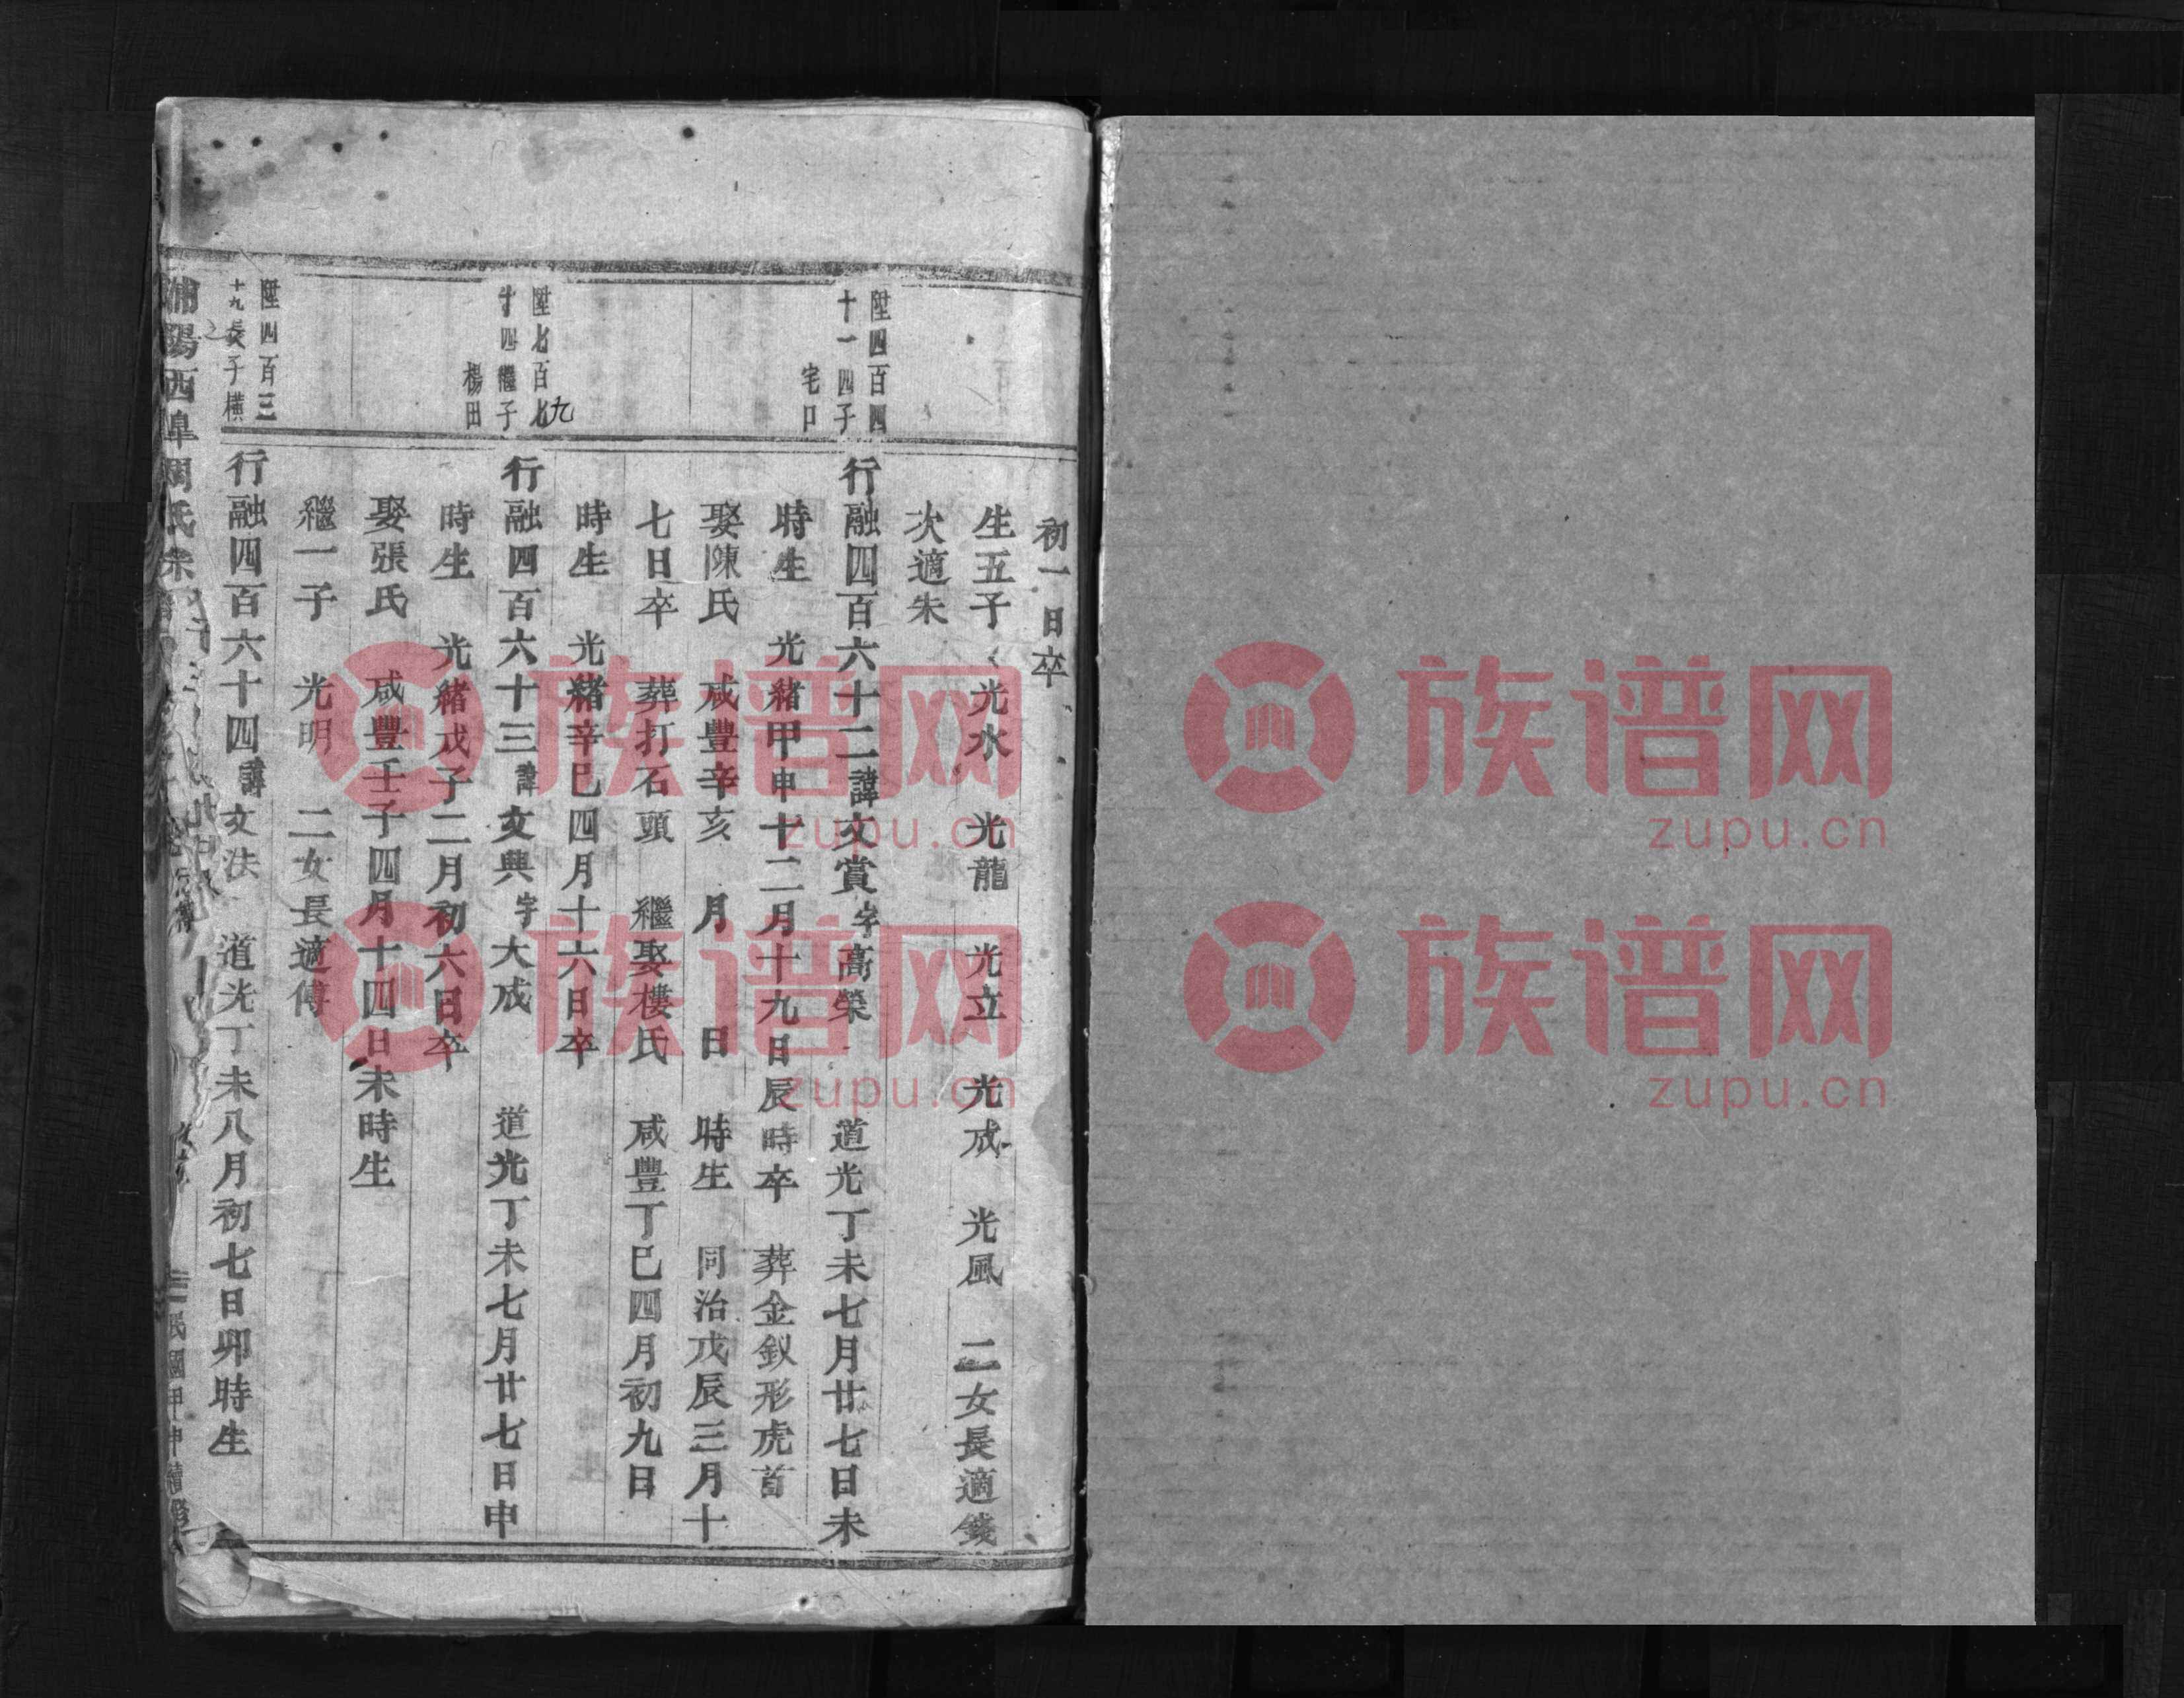 初一日卒
生五子 光水 光龍 光立 光成 光風 二女長適錢
次適朱
陞四百四
十一四子
宅口
行融四百六十二諱文賞字高榮 道光丁未七月廿七日未
時生 光緒甲申十二月十九日辰時卒 葬金釵形虎首
娶陳氏 咸豐辛亥 月 日 時生 同治戊辰三月十
七日卒 葬打石頭 繼娶樓氏 咸豐丁巳四月初九日
時生 光緒辛巳四月十六日卒
陞七百七九
十四繼子
楊田
行融四百六十三諱文興字大成 道光丁未七月廿七日申
時生 光緒戊子二月初六日卒
娶張氏 咸豐壬子四月十四日未時生
繼一子 光明 二女長適傅
陞四百三
十九長子橫
行融四百六十四諱文法 道光丁未八月初七日卯時生
浦陽西皐周氏宗譜 民國甲申續修
族谱网
zupu.cn
族谱网
zupu.cn
族谱网
zupu.cn
族谱网
zupu.cn